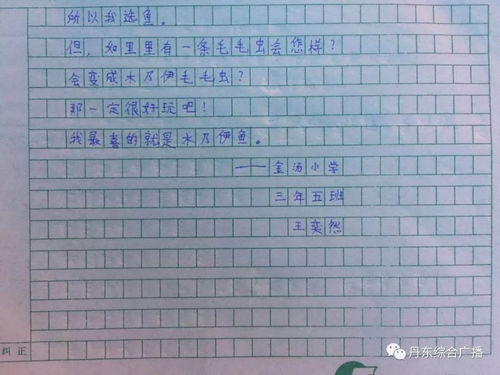 所以我选鱼。
但，如里里有一条毛毛虫会怎样？
会变成木乃伊毛毛虫？
那一定很好玩吧！
我最喜的就是木乃伊鱼。
——金汤小学
三年五班
王奕然
纠正
丹东综合广播